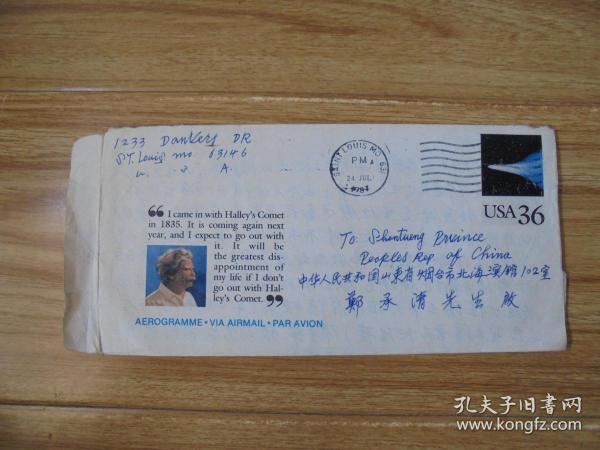 1233 Dankers DR
ST. Louis mo 63146
U. S. A.
SAINT LOUIS MO 631
PM
24 JUL
USA 36
“I came in with Halley's Comet
in 1835. It is coming again next
year, and I expect to go out with
it. It will be
the greatest dis-
appointment of
my life if I don't
go out with Hal-
ley's Comet.”
AEROGRAMME • VIA AIRMAIL • PAR AVION
To: Shantueng Province
Peoples Rep of China
中华人民共和国山东省烟台市北海宾馆102室
鄭承清先生啟
孔夫子旧书网
www.kongfz.com